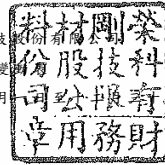 榮剛材料
科技股份
有限公司
財務用章